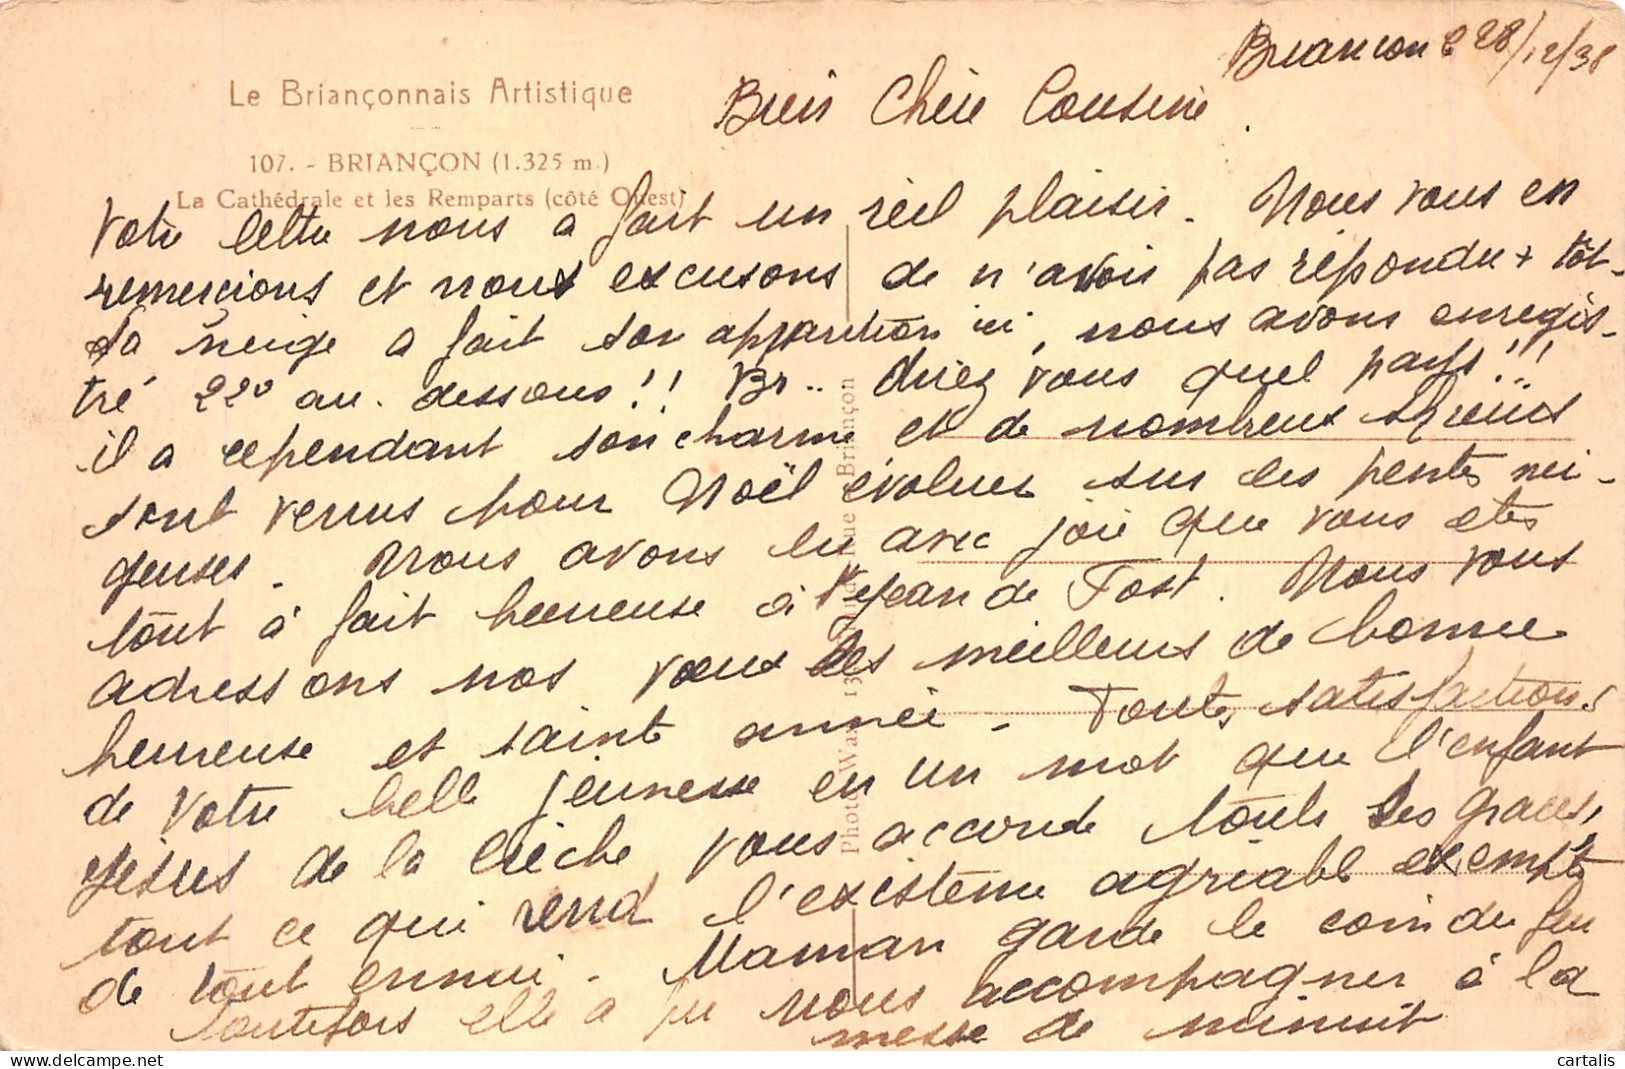 Briancon le 28/12/38
Le Briançonnais Artistique
Bien Chère Cousine.
107. - BRIANÇON (1.325 m.)
La Cathédrale et les Remparts (côté Ouest)
Votre lettre nous a fait un réel plaisir. Nous vous en
remercions et nous excusons de n'avoir pas répondu + tôt.
La neige a fait son apparition ici, nous avons enregis-
tré 22° au-dessous!! Br.. direz vous quel pays!!!
il a cependant son charme et de nombreux skieurs
sont venus pour Noël évoluer sur les pentes nei-
geuses. Nous avons lu avec joie que vous etes
tout à fait heureuse à Jean de Fost. Nous vous
adressons nos voeux les meilleurs de bonne
heureuse et sainte année. Toutes satisfactions
de votre belle jeunesse en un mot que l'enfant
Jésus de la Crèche vous accorde toutes les graces,
tout ce qui rend l'existence agréable exempte
de tout ennui. Maman garde le coin du feu
toutefois elle a pu nous accompagner à la
messe de minuit
Photo Rue Briançon
cartalis